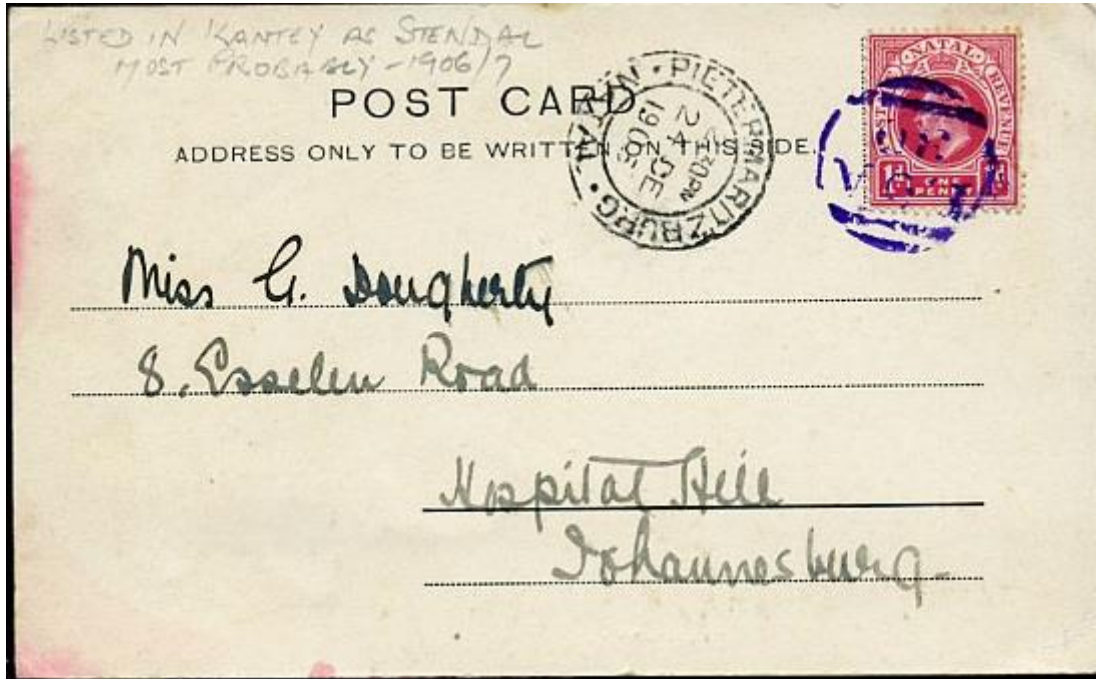 LISTED IN KANTEY AS STENDAL
MOST PROBABLY - 1906/7
POST CARD
ADDRESS ONLY TO BE WRITTEN ON THIS SIDE.
PIETERMARITZBURG · NATAL
2 30 PM
24 DE
190
NATAL
POSTAGE REVENUE
ONE
PENNY
Miss G. Dougherty
8, Esselen Road
Hospital Hill
Johannesburg.